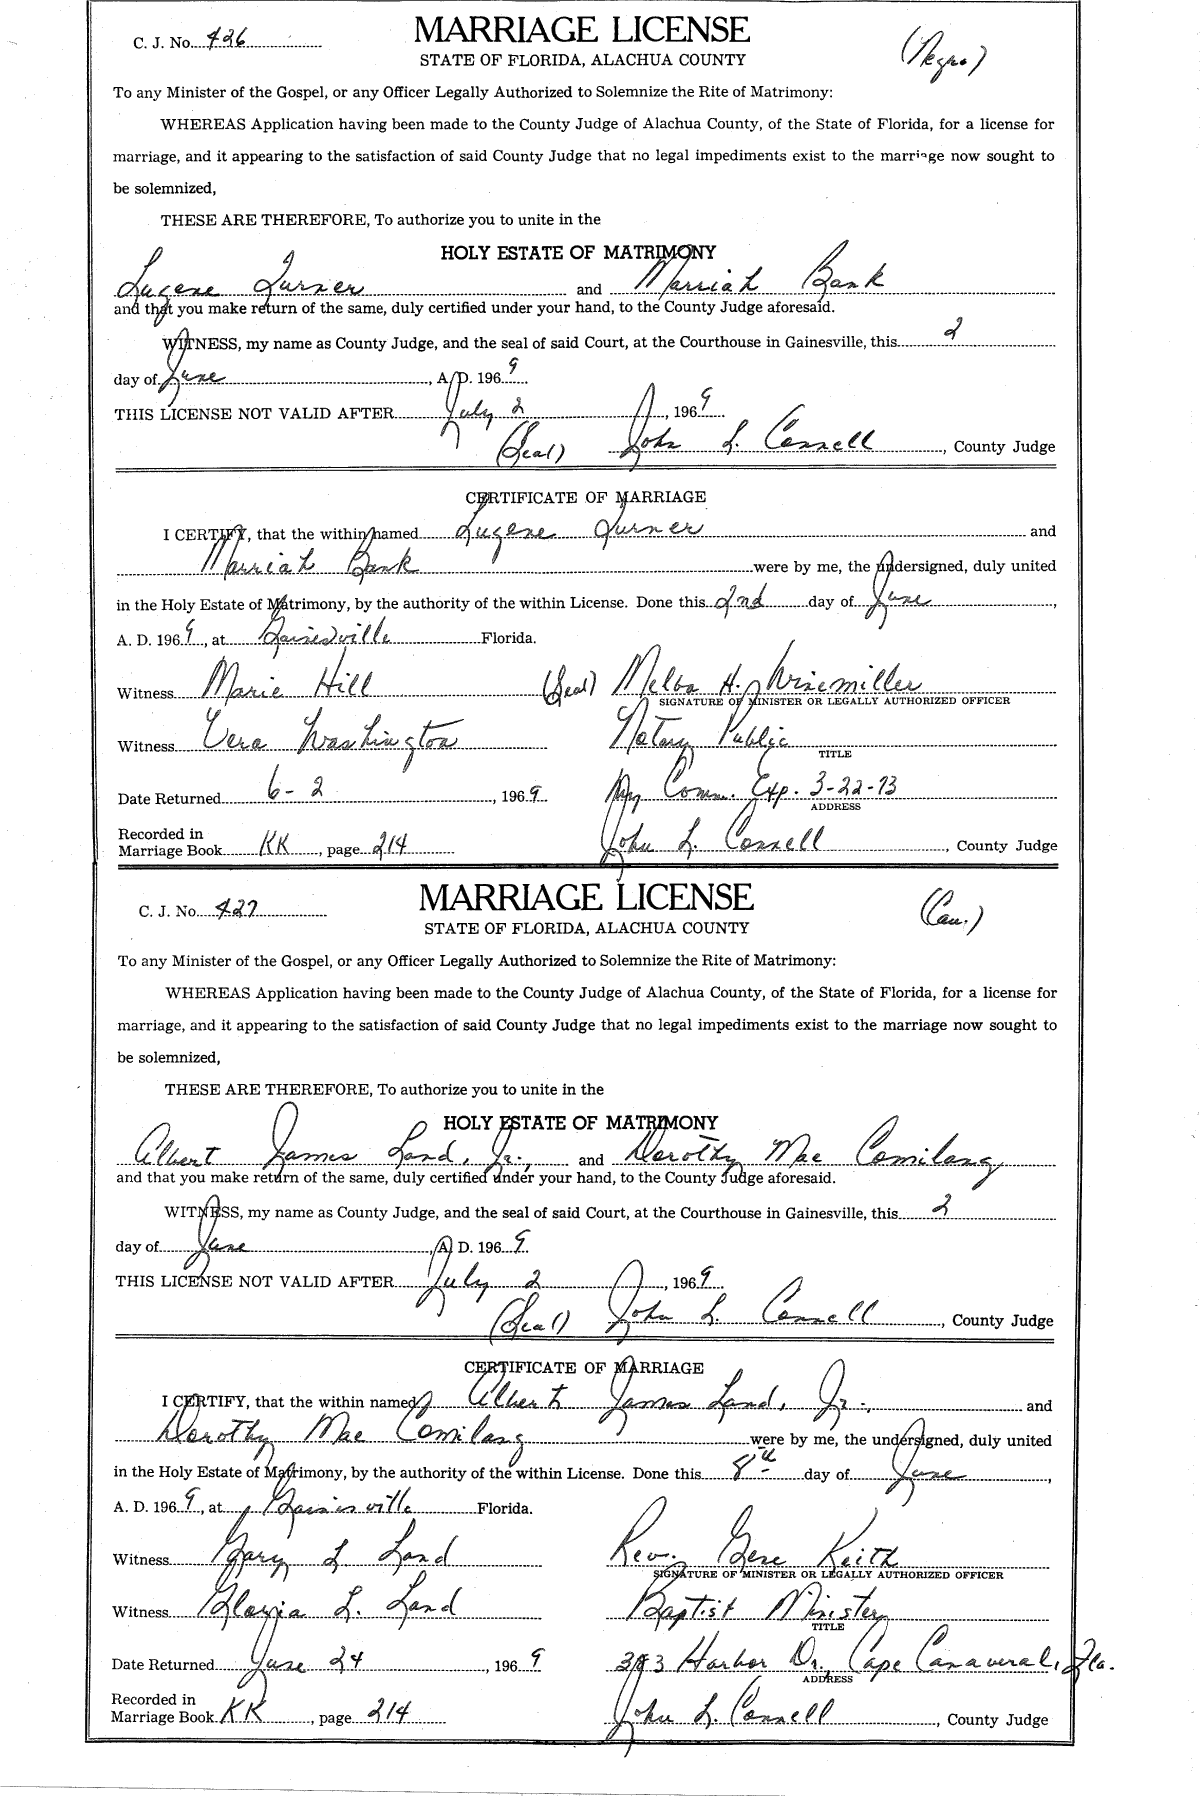 C. J. No. 426
MARRIAGE LICENSE
(Negro)
STATE OF FLORIDA, ALACHUA COUNTY
To any Minister of the Gospel, or any Officer Legally Authorized to Solemnize the Rite of Matrimony:
WHEREAS Application having been made to the County Judge of Alachua County, of the State of Florida, for a license for
marriage, and it appearing to the satisfaction of said County Judge that no legal impediments exist to the marriage now sought to
be solemnized,
THESE ARE THEREFORE, To authorize you to unite in the
HOLY ESTATE OF MATRIMONY
Eugene Turner and Marriah Bank
and that you make return of the same, duly certified under your hand, to the County Judge aforesaid.
WITNESS, my name as County Judge, and the seal of said Court, at the Courthouse in Gainesville, this 2
day of June, A. D. 1969
THIS LICENSE NOT VALID AFTER July 2, 1969
(Seal) John L. Connell, County Judge
CERTIFICATE OF MARRIAGE
I CERTIFY, that the within named Eugene Turner and
Marriah Bank were by me, the undersigned, duly united
in the Holy Estate of Matrimony, by the authority of the within License. Done this 2nd day of June,
A. D. 1969, at Gainesville Florida.
Witness Marie Hill (Seal) Melba H. Winemiller
SIGNATURE OF MINISTER OR LEGALLY AUTHORIZED OFFICER
Witness Vera Washington Notary Public
TITLE
Date Returned 6-2, 1969 My Comm. Exp. 3-22-73
ADDRESS
Recorded in
Marriage Book KK, page 214 John L. Connell, County Judge
C. J. No. 427
MARRIAGE LICENSE
(Cau.)
STATE OF FLORIDA, ALACHUA COUNTY
To any Minister of the Gospel, or any Officer Legally Authorized to Solemnize the Rite of Matrimony:
WHEREAS Application having been made to the County Judge of Alachua County, of the State of Florida, for a license for
marriage, and it appearing to the satisfaction of said County Judge that no legal impediments exist to the marriage now sought to
be solemnized,
THESE ARE THEREFORE, To authorize you to unite in the
HOLY ESTATE OF MATRIMONY
Albert James Land, Jr., and Dorothy Mae Comilang
and that you make return of the same, duly certified under your hand, to the County Judge aforesaid.
WITNESS, my name as County Judge, and the seal of said Court, at the Courthouse in Gainesville, this 2
day of June, A. D. 1969.
THIS LICENSE NOT VALID AFTER July 2, 1969
(Seal) John L. Connell, County Judge
CERTIFICATE OF MARRIAGE
I CERTIFY, that the within named Albert James Land, Jr., and
Dorothy Mae Comilang were by me, the undersigned, duly united
in the Holy Estate of Matrimony, by the authority of the within License. Done this 8th day of June,
A. D. 1969, at Gainesville Florida.
Witness Gary L Land Rev. Gene Keith
SIGNATURE OF MINISTER OR LEGALLY AUTHORIZED OFFICER
Witness Gloria L. Land Baptist Minister
TITLE
Date Returned June 24, 1969 Harbor Dr., Cape Canaveral, Fla.
ADDRESS
Recorded in
Marriage Book KK, page 214 John L. Connell, County Judge